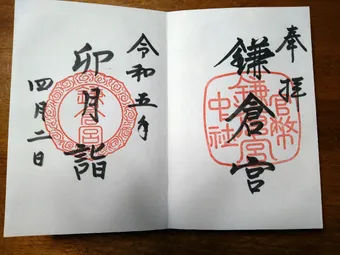 奉拝
鎌倉宮
官幣中社
鎌倉宮
令和五年
卯月詣
四月二日